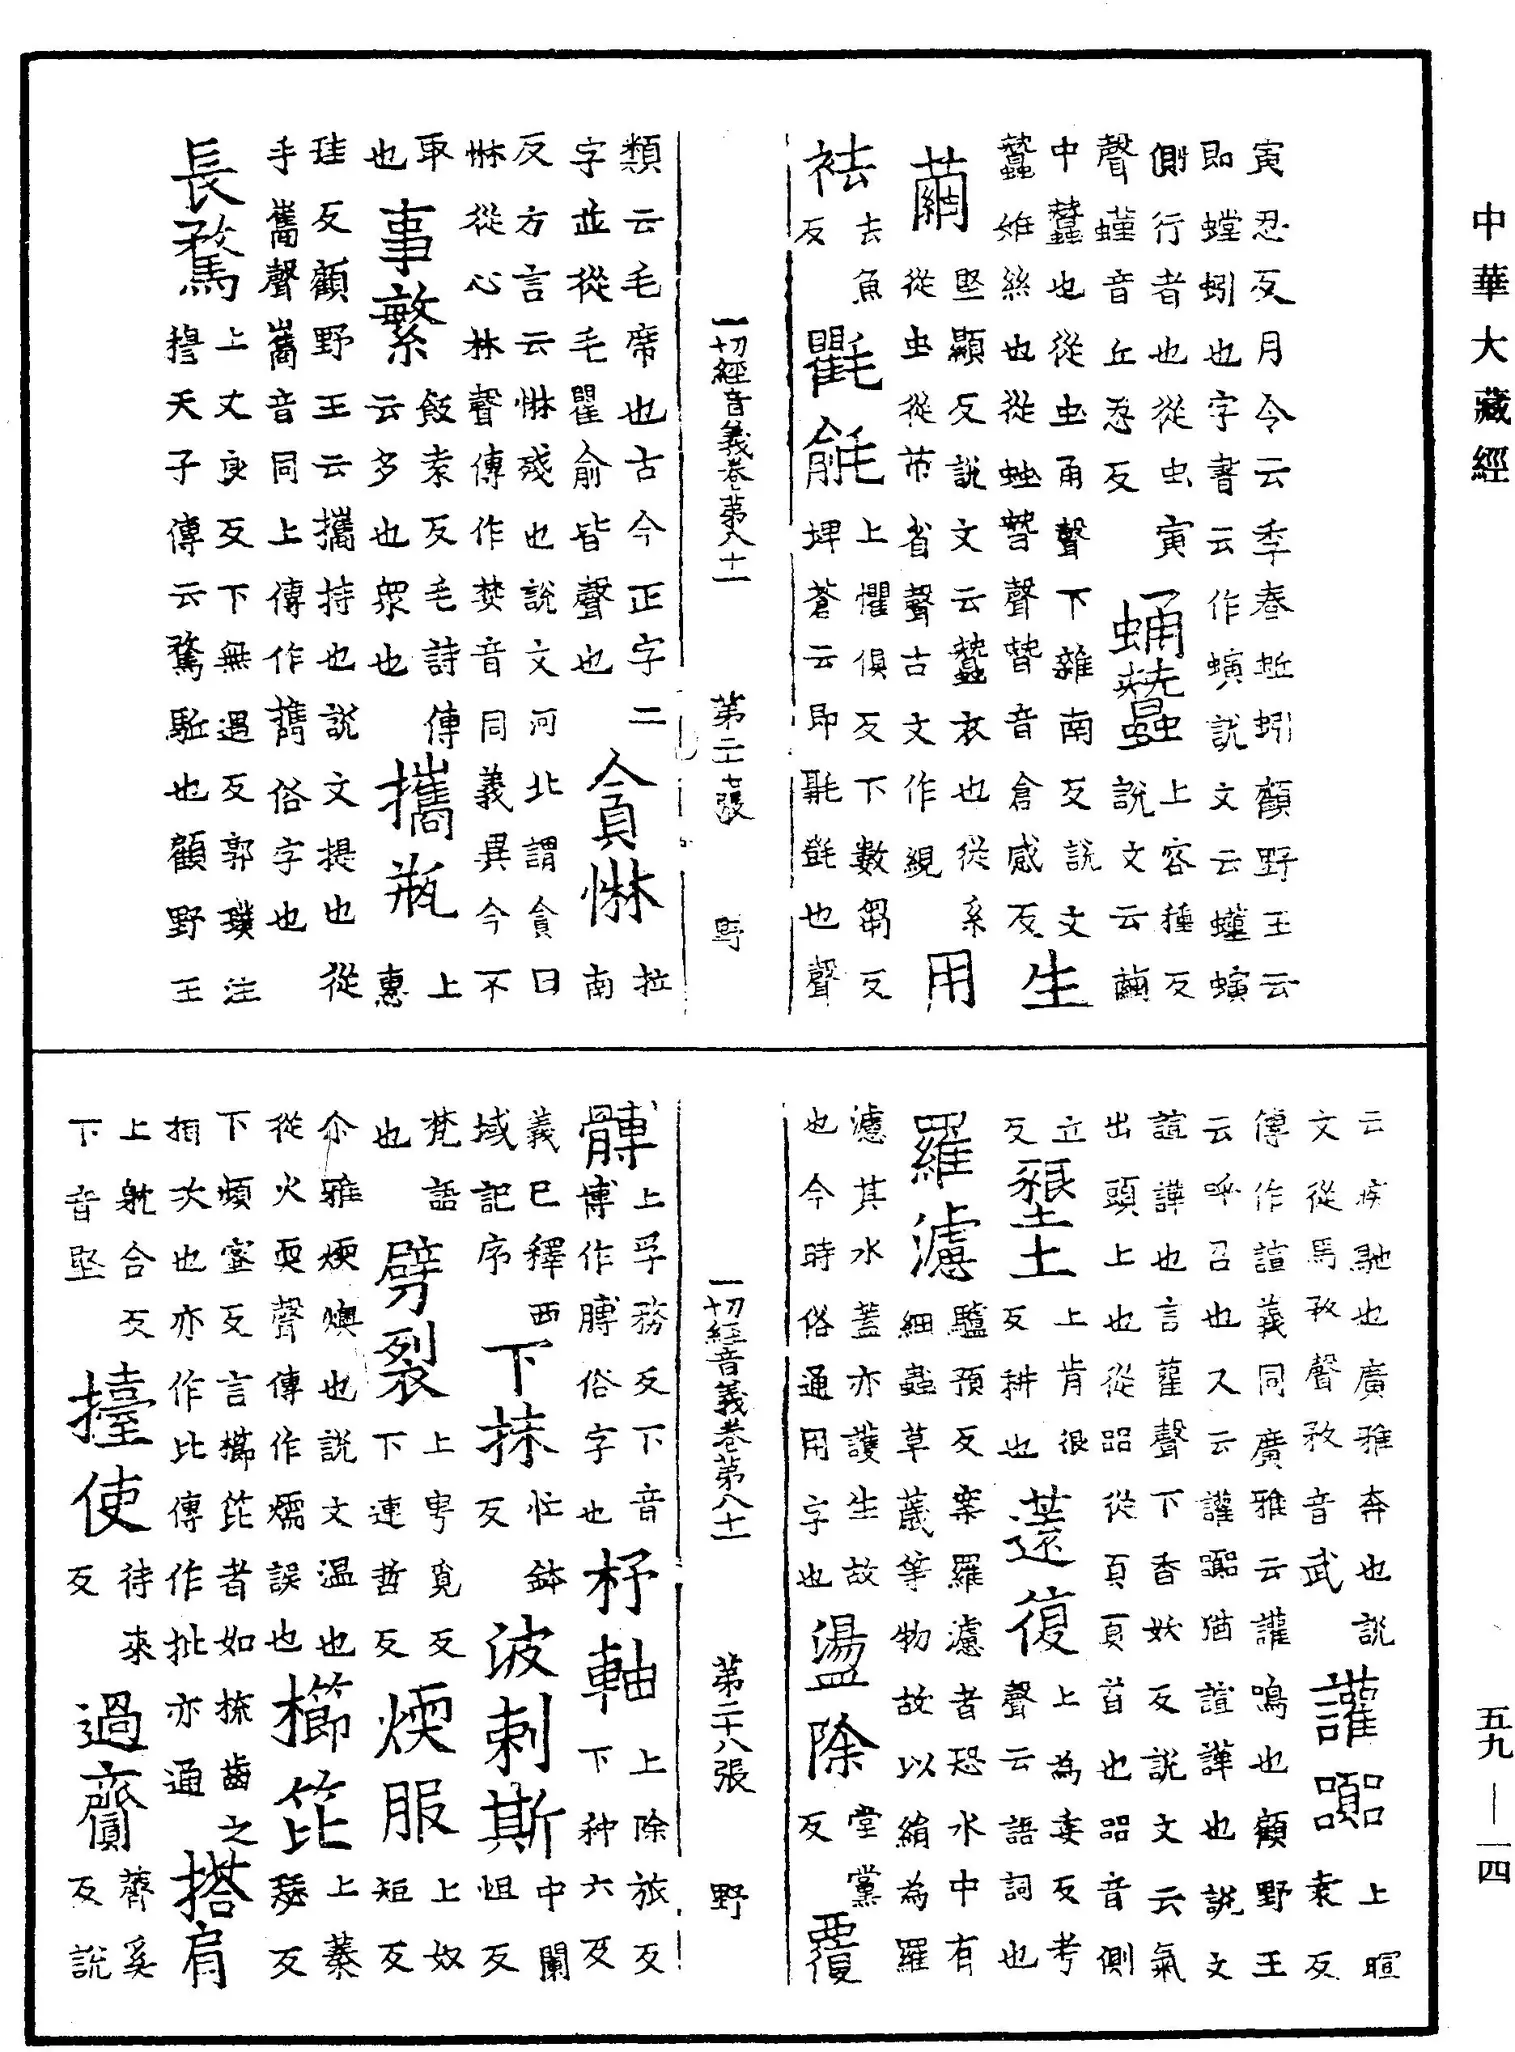 中華大藏經
寅忍反月令云季春蚯蚓顧野王云
即螾蚓也字書云作螾說文云蟺螾
側行者也從虫寅
聲蟺音丘忍反
蛹蠶
上容種反
說文云繭
中蠶也從虫甬聲下雜南反說文
蠶
絲也從䖵朁聲朁音倉感反
生
繭
堅顯反說文云蠶衣也從糸
從虫從芇省聲古文作絸
用
袪
去魚
反
氍毹
上懼俱反下數芻反
埤蒼云即毾㲪也聲
一切經音義卷第八十一 第二十七張 野
類云毛席也古今正字二
字並從毛瞿俞皆聲也
貪惏
拉
南
反方言云惏殘也說文河北謂貪曰
惏從心林聲傳作婪音同義異今不
取
也
事繁
飯袁反毛詩傳
云多也眾也
攜瓶
上
惠
珪反顧野王云攜持也說文提也從
手巂聲巂音同上傳作㩗俗字也
長騖
上丈庚反下無遇反郭璞注
穆天子傳云騖馳也顧野王
云疾馳也廣雅奔也說
文從馬敄聲敄音武
讙嚻
上暄
袁反
傳作諠義同廣雅云讙鳴也顧野王
云呼召也又云讙嚻猶諠譁也說文
諠譁也言雚聲下香妖反說文云氣
出頭上也從㗊從頁頁首也㗊音側
立
反
墾土
上肯很
反耕也
還復
上為妾反考
聲云語詞也
羅濾
驢預反案羅濾者恐水中有
細蟲草蟻等物故以絹為羅
濾其水蓋亦護生故
也今時俗通用字也
盪除
堂黨
反
覆
一切經音義卷第八十一 第二十八張 野
髆
上孚務反下音
博作膊俗字也
杼軸
上除旅反
下种六反
義已釋西
域記序
下抹
忙鉢
反
波剌斯
中闌
怛反
梵語
也
劈裂
上甹覓反
下連哲反
煗服
上奴
短反
尒雅煗燠也說文溫也
從火耎聲傳作燸誤也
櫛笓
上蓁
瑟反
下頻蜜反言櫛笓者如梳齒之
相次也亦作比傳作批亦通
搭肩
上躭合反
下音堅
擡使
待來
反
過齎
薺奚
反說
五九—一四